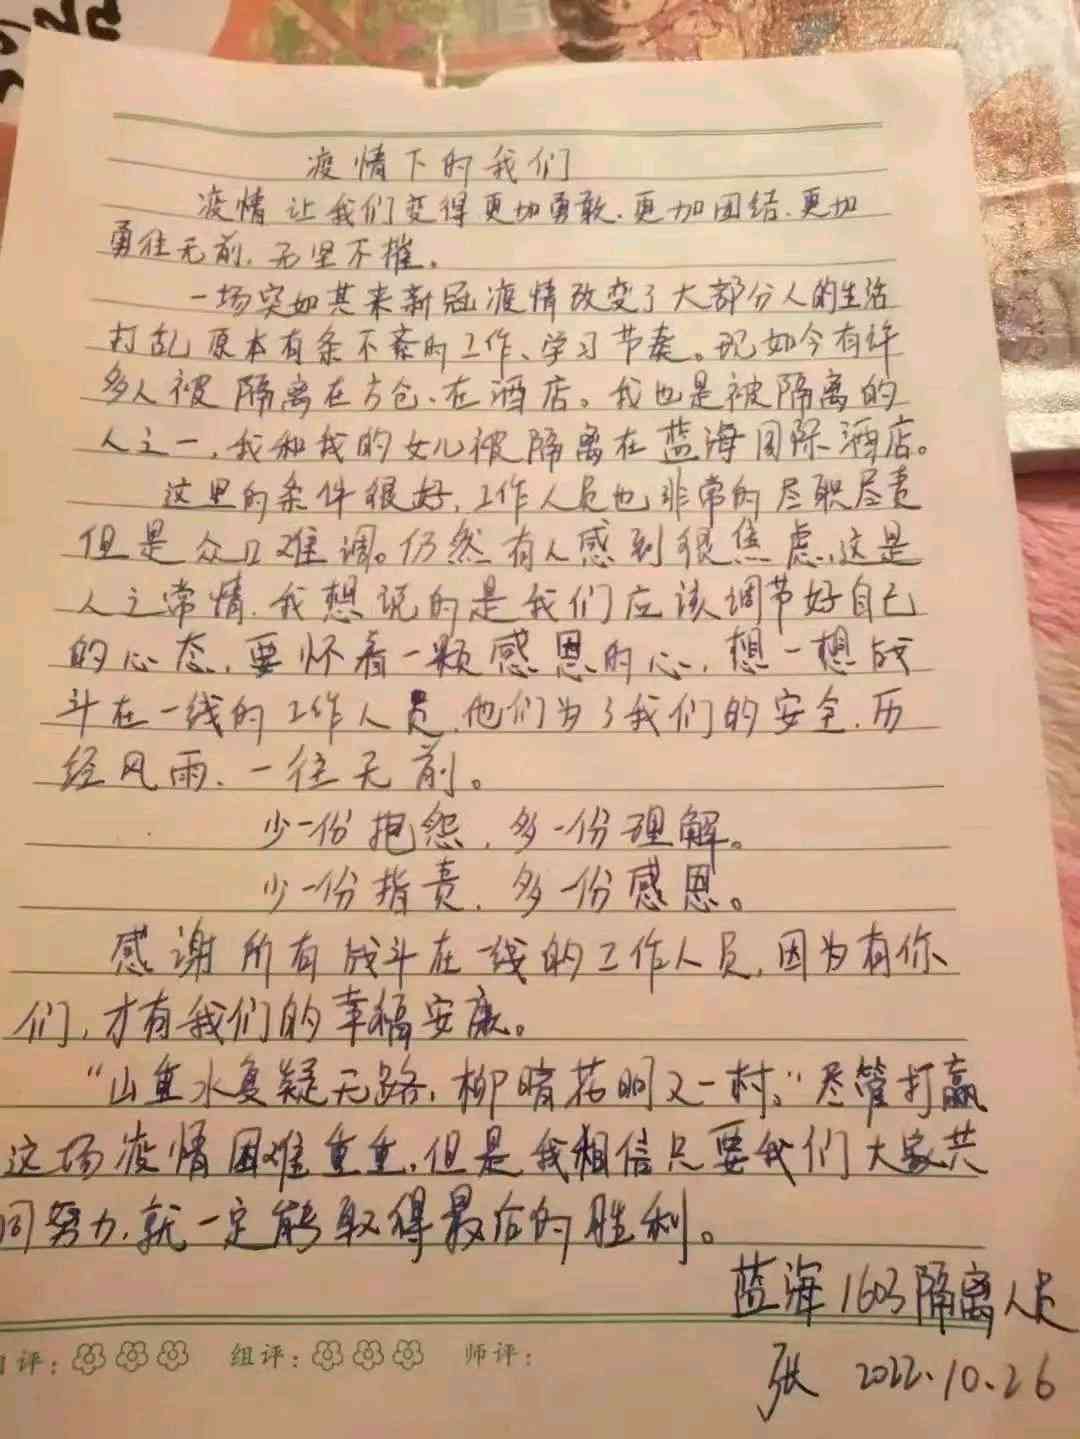 疫情下的我们
疫情让我们变得更加勇敢、更加团结、更加
勇往无前，无坚不摧。
一场突如其来新冠疫情改变了大部分人的生活
打乱原本有条不紊的工作、学习节奏。现如今有许
多人被隔离在方仓、在酒店。我也是被隔离的
人之一，我和我的女儿被隔离在蓝海国际酒店。
这里的条件很好，工作人员也非常的尽职尽责
但是众口难调。仍然有人感到很焦虑，这是
人之常情，我想说的是我们应该调节好自己
的心态，要怀着一颗感恩的心，想一想战
斗在一线的工作人员，他们为了我们的安全，历
经风雨、一往无前。
少一份抱怨，多一份理解。
少一份指责，多一份感恩。
感谢所有战斗在一线的工作人员，因为有你
们，才有我们的幸福安康。
“山重水复疑无路，柳暗花明又一村。”尽管打赢
这场疫情困难重重，但是我相信只要我们大家共
同努力，就一定能取得最后的胜利。
蓝海1603隔离人员
张 2022.10.26
自评： 组评： 师评：